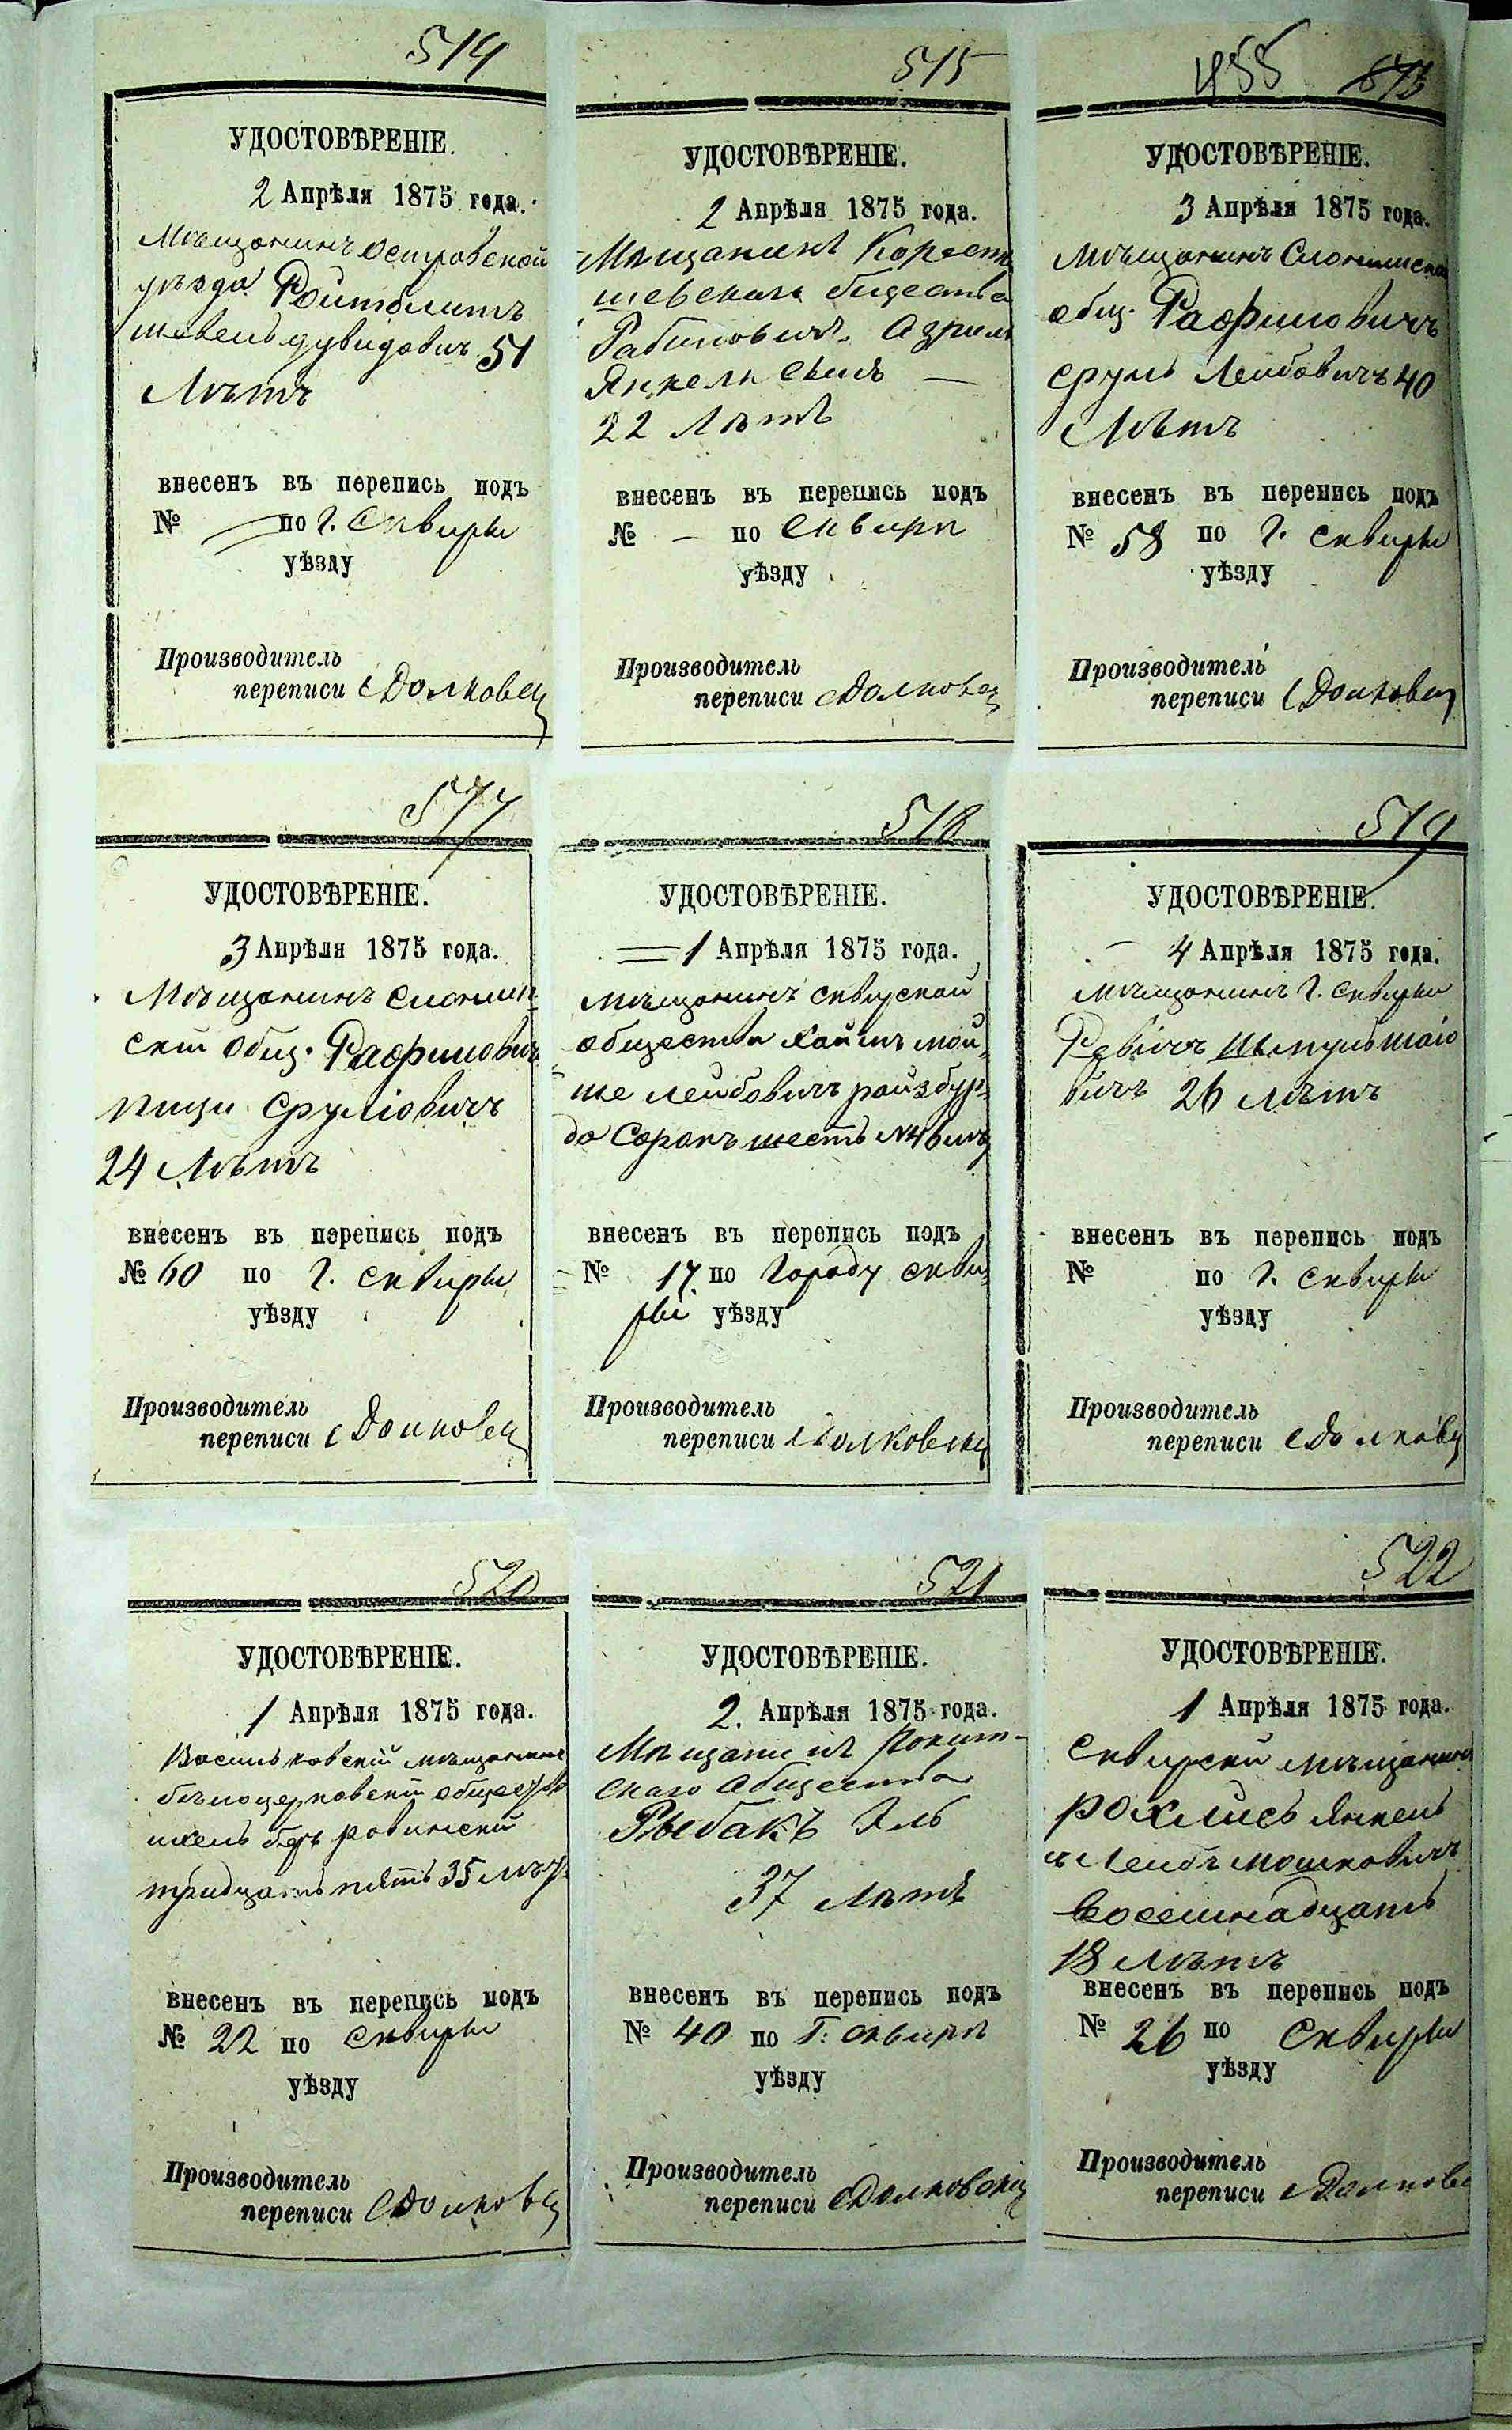 514
УДОСТОВѢРЕНІЕ.
2 Апрѣля 1875 года.
Мѣщанинъ Островской
уѣзда Ройтблитъ
шевель дувидовичъ 51
Лѣтъ
внесенъ въ перепись подъ
№ — по г. Сквиры
уѣзду
Производитель
переписи
515
УДОСТОВѢРЕНІЕ.
2 Апрѣля 1875 года.
Мѣщанинъ Корост
шевскаго бщества
Рабиновичъ Азриль
Янкель
22 Лѣтъ
внесенъ въ перепись подъ
№ — по Сквирѣ
уѣзду
Производитель
переписи
455
УДОСТОВѢРЕНІЕ.
3 Апрѣля 1875 года.
Мѣщанинъ
общ. Рафиловичъ
сруль Лейбовичъ 40
Лѣтъ
внесенъ въ перепись подъ
№ 58 по г. Сквиры
уѣзду
Производитель
переписи
517
УДОСТОВѢРЕНІЕ.
3 Апрѣля 1875 года.
Мѣщанинъ
скій общ. Рафиловичъ
Сруліовичъ
24 Лѣтъ
внесенъ въ перепись подъ
№ 60 по г. Сквиры
уѣзду
Производитель
переписи
518
УДОСТОВѢРЕНІЕ.
1 Апрѣля 1875 года.
мѣщанинъ сквирской
общества Хаимъ мой
ше лейбовичъ ройзбур
до Сорокъ шесть
внесенъ въ перепись подъ
№ 17. по городу скви
ры уѣзду
Производитель
переписи
519
УДОСТОВѢРЕНІЕ.
4 Апрѣля 1875 года.
мѣщанинъ г. Сквиры
шмуль шаіо
вичъ 26 лѣтъ
внесенъ въ перепись подъ
№ по г. Сквиры
уѣзду
Производитель
переписи
520
УДОСТОВѢРЕНІЕ.
1 Апрѣля 1875 года.
Васильковскій мѣщанинъ
бѣлоцерковскій общество
беръ ровинскій
тридцать пять 35 лѣт
внесенъ въ перепись подъ
№ 22 по Сквиры
уѣзду
Производитель
переписи
521
УДОСТОВѢРЕНІЕ.
2. Апрѣля 1875 года.
Мѣщанинъ Рокит-
скаго Общества
Рыбакъ Эль
37 Лѣтъ
внесенъ въ перепись подъ
№ 40 по Г: Сквирѣ
уѣзду
Производитель
переписи
522
УДОСТОВѢРЕНІЕ.
1 Апрѣля 1875 года.
Сквирскій мѣщанинъ
рохлисъ Янкель
Лейбъ мошковичъ
восемнадцать
18 Лѣтъ
внесенъ въ перепись подъ
№ 26 по Сквиры
уѣзду
Производитель
переписи